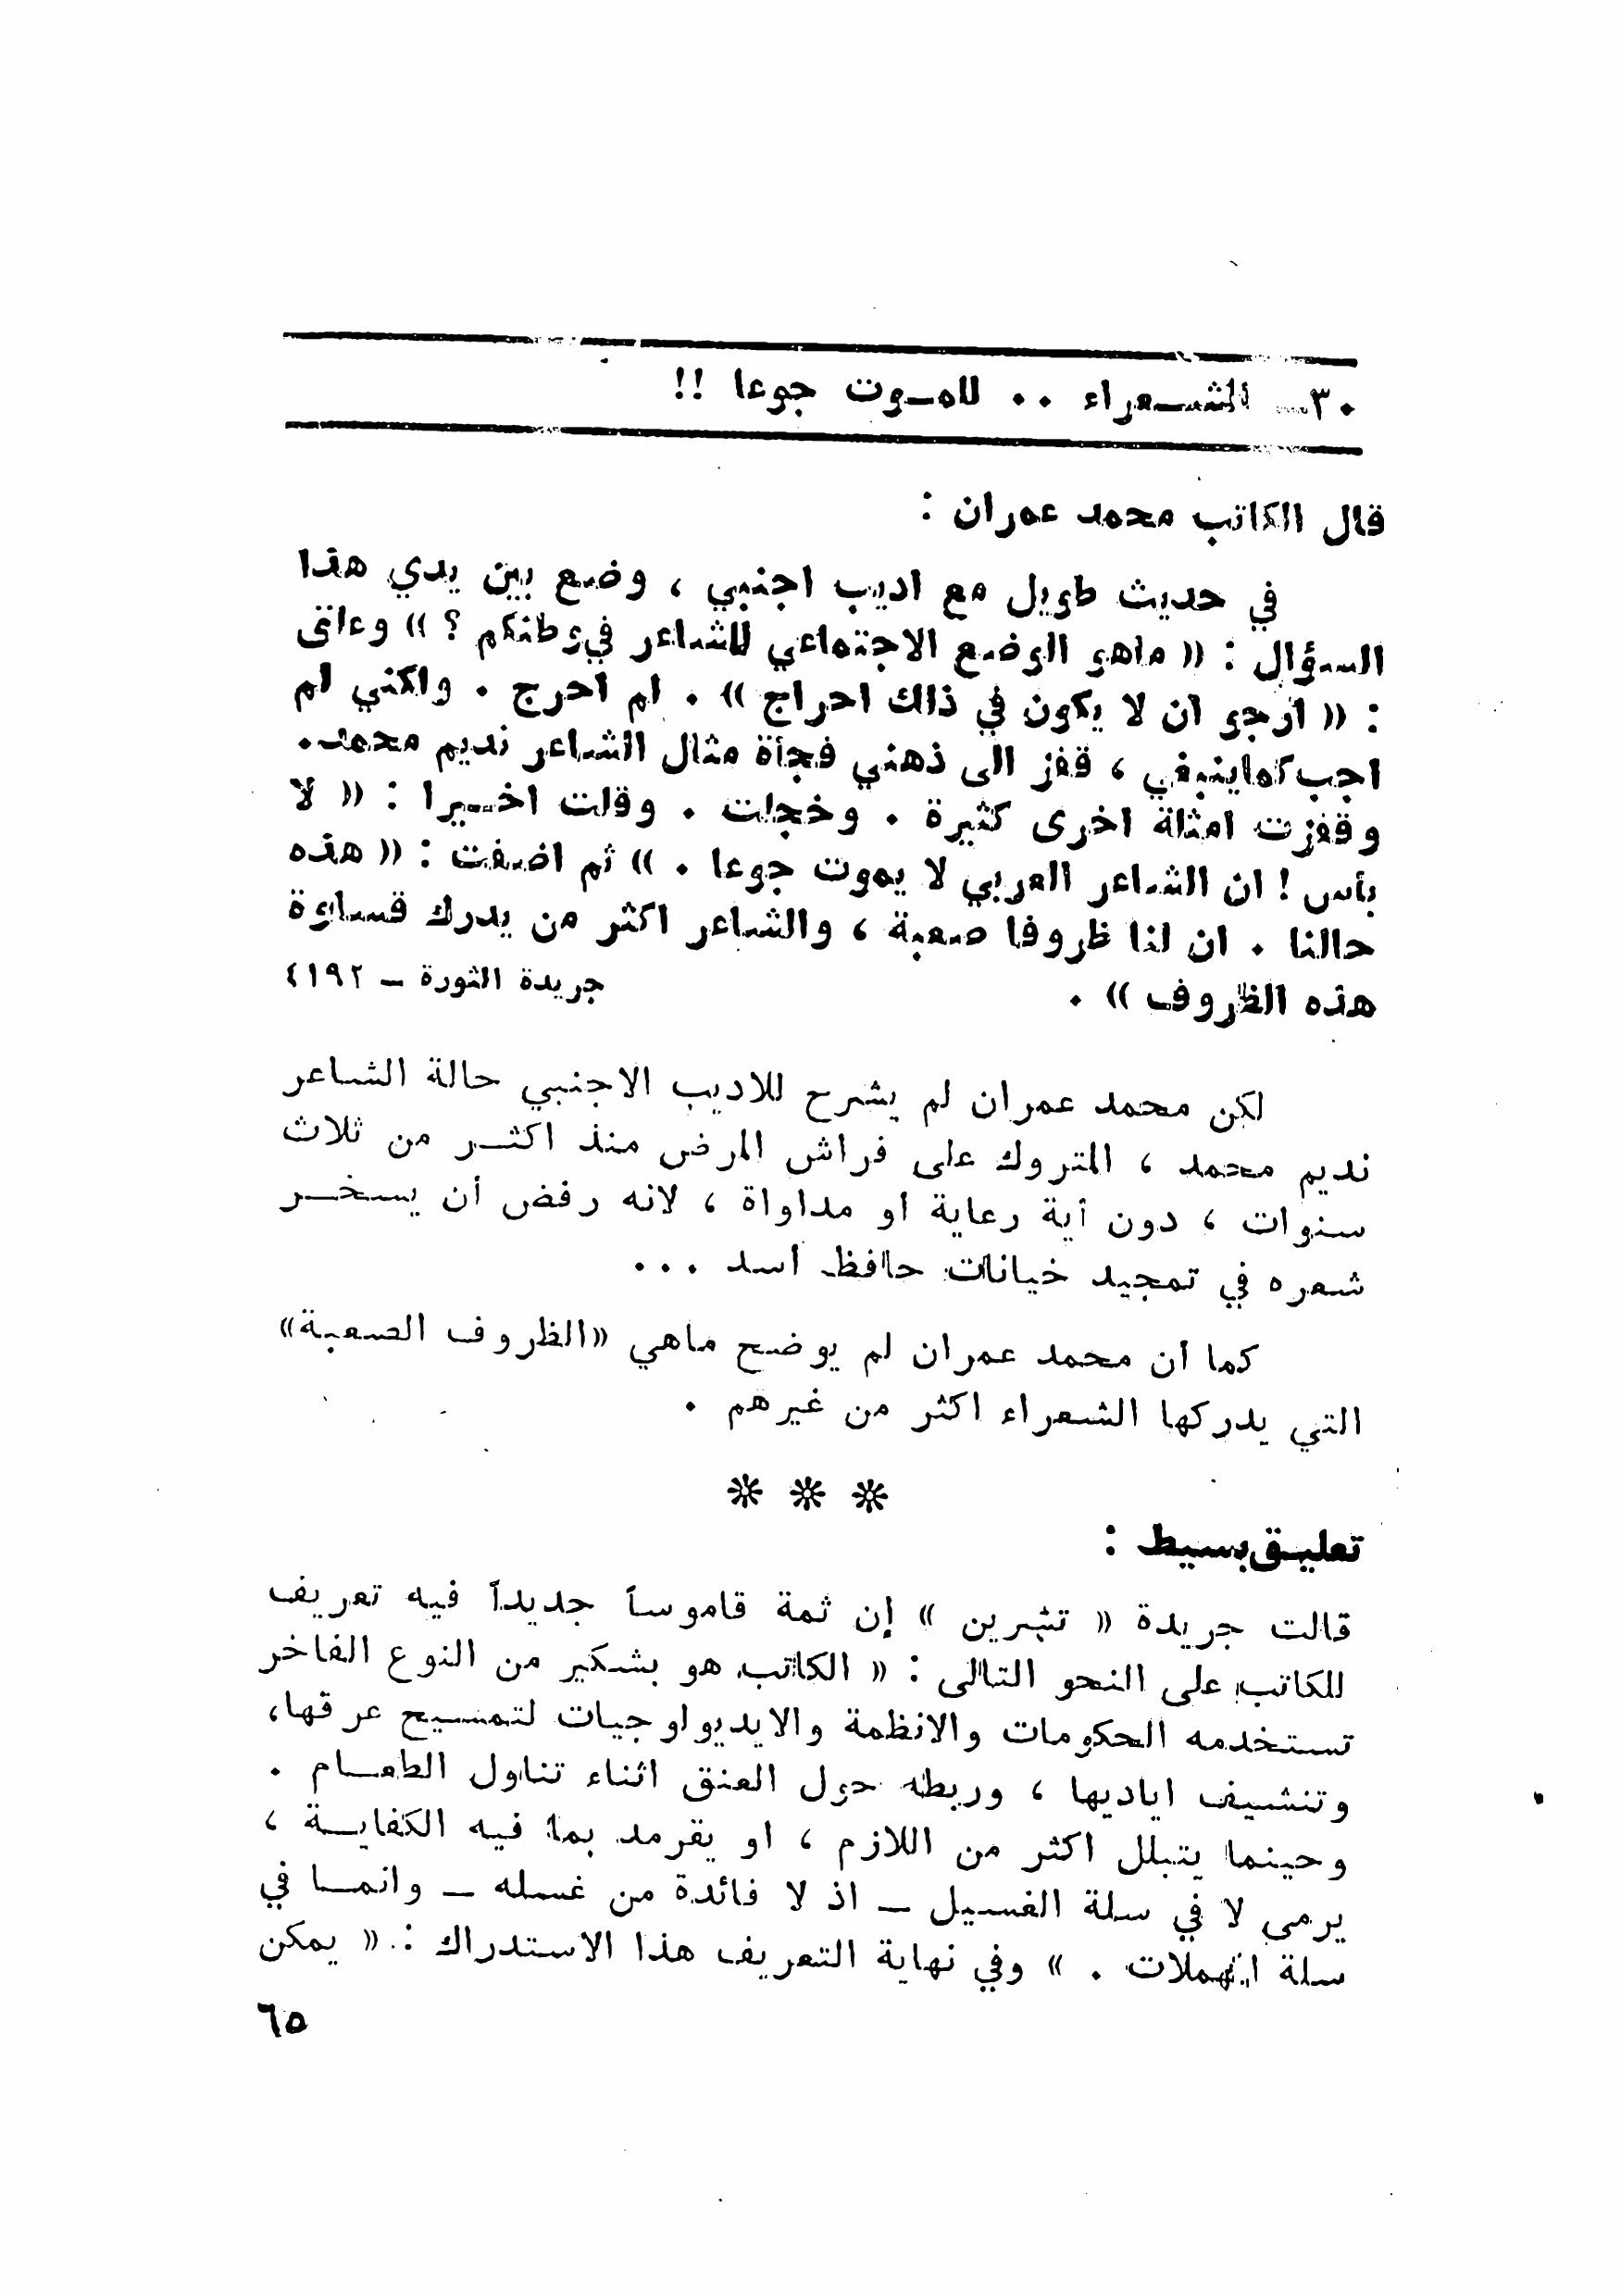 ٣٠ـ الشــعراء .. للمـوت جوعا !!
قال الكاتب محمد عمران :
في حديث طويل مع اديب اجنبي ، وضع بين يدي هذا
السؤال : « ماهو الوضع الاجتماعي للشاعر في وطنكم ؟ » وعلق
: « ارجو ان لا يكون في ذلك احراج » . لم احرج . ولكني لم
اجب كما ينبغي ، قفز الى ذهني فجأة مثال الشاعر نديم محمد.
وقفزت امثلة اخرى كثيرة . وخجلت . وقلت اخـيرا : « لا
بأس ! ان الشاعر العربي لا يموت جوعا . » ثم اضفت : « هذه
حالنا . ان لنا ظروفا صعبة ، والشاعر اكثر من يدرك قساوة
هذه الظروف » .
جريدة الثورة – ٤١٩٢
لكن محمد عمران لم يشرح للاديب الاجنبي حالة الشاعر
نديم محمد ، المتروك على فراش المرض منذ اكثــر من ثلاث
سنوات ، دون أية رعاية او مداواة ، لانه رفض أن يسخــر
شعره في تمجيد خيانات حافظ أسد ...
كما أن محمد عمران لم يوضح ماهي «الظروف الصعبة»
التي يدركها الشعراء اكثر من غيرهم .
* * *
تعليـق بسيط :
قالت جريدة « تشرين » إن ثمة قاموساً جديداً فيه تعريف
للكاتب على النحو التالى : « الكاتب هو بشكير من النوع الفاخر
تستخدمه الحكومات والانظمة والايديولوجيات لتمسيح عرقها،
وتنشيف اياديها ، وربطه حول العنق اثناء تناول الطعــام .
وحينما يتبلل اكثر من اللازم ، او يقرمد بما فيه الكفايــة ،
يرمى لا في سلة الغسيل – اذ لا فائدة من غسله – وانمــا في
سلة المهملات . » وفي نهاية التعريف هذا الاستدراك : « يمكن
٦٥